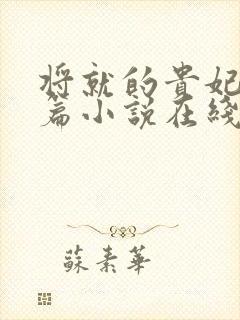 将就的貴妃
篇小説在綫
蘇素華